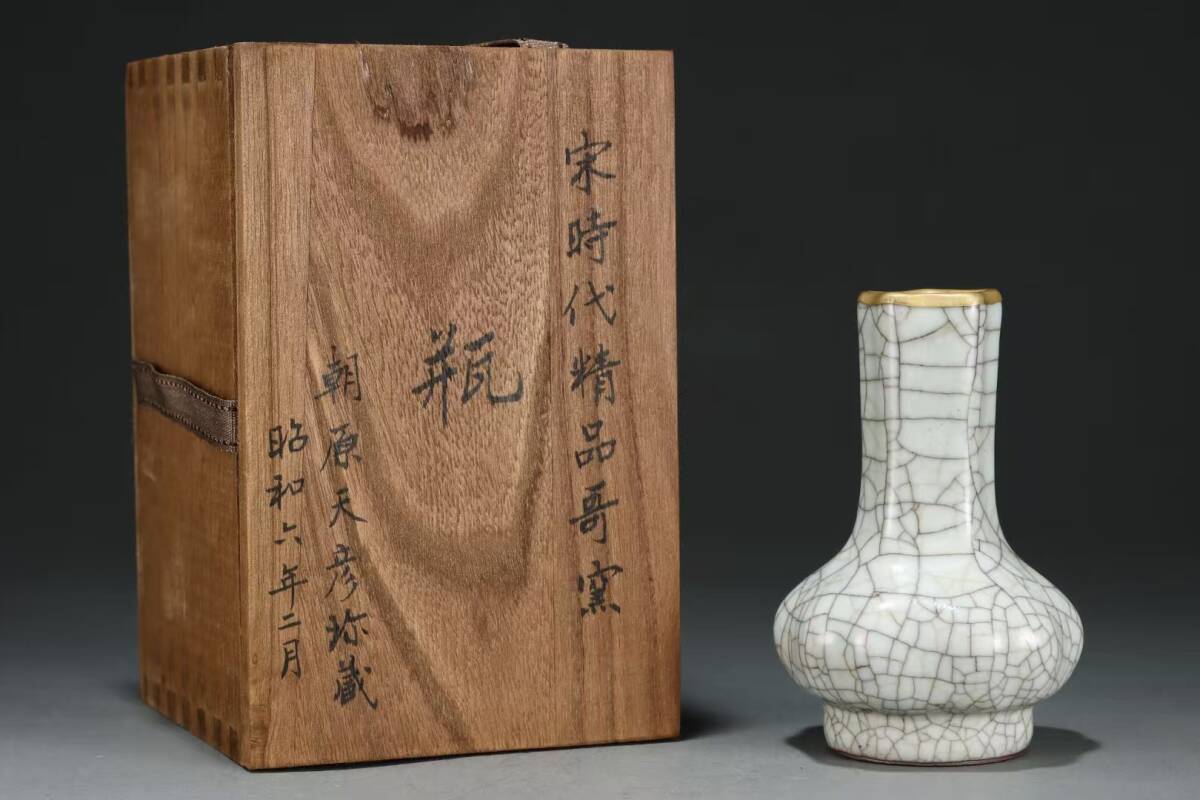 宋時代精品哥窯
瓶
朝原天彦珎藏
昭和六年二月